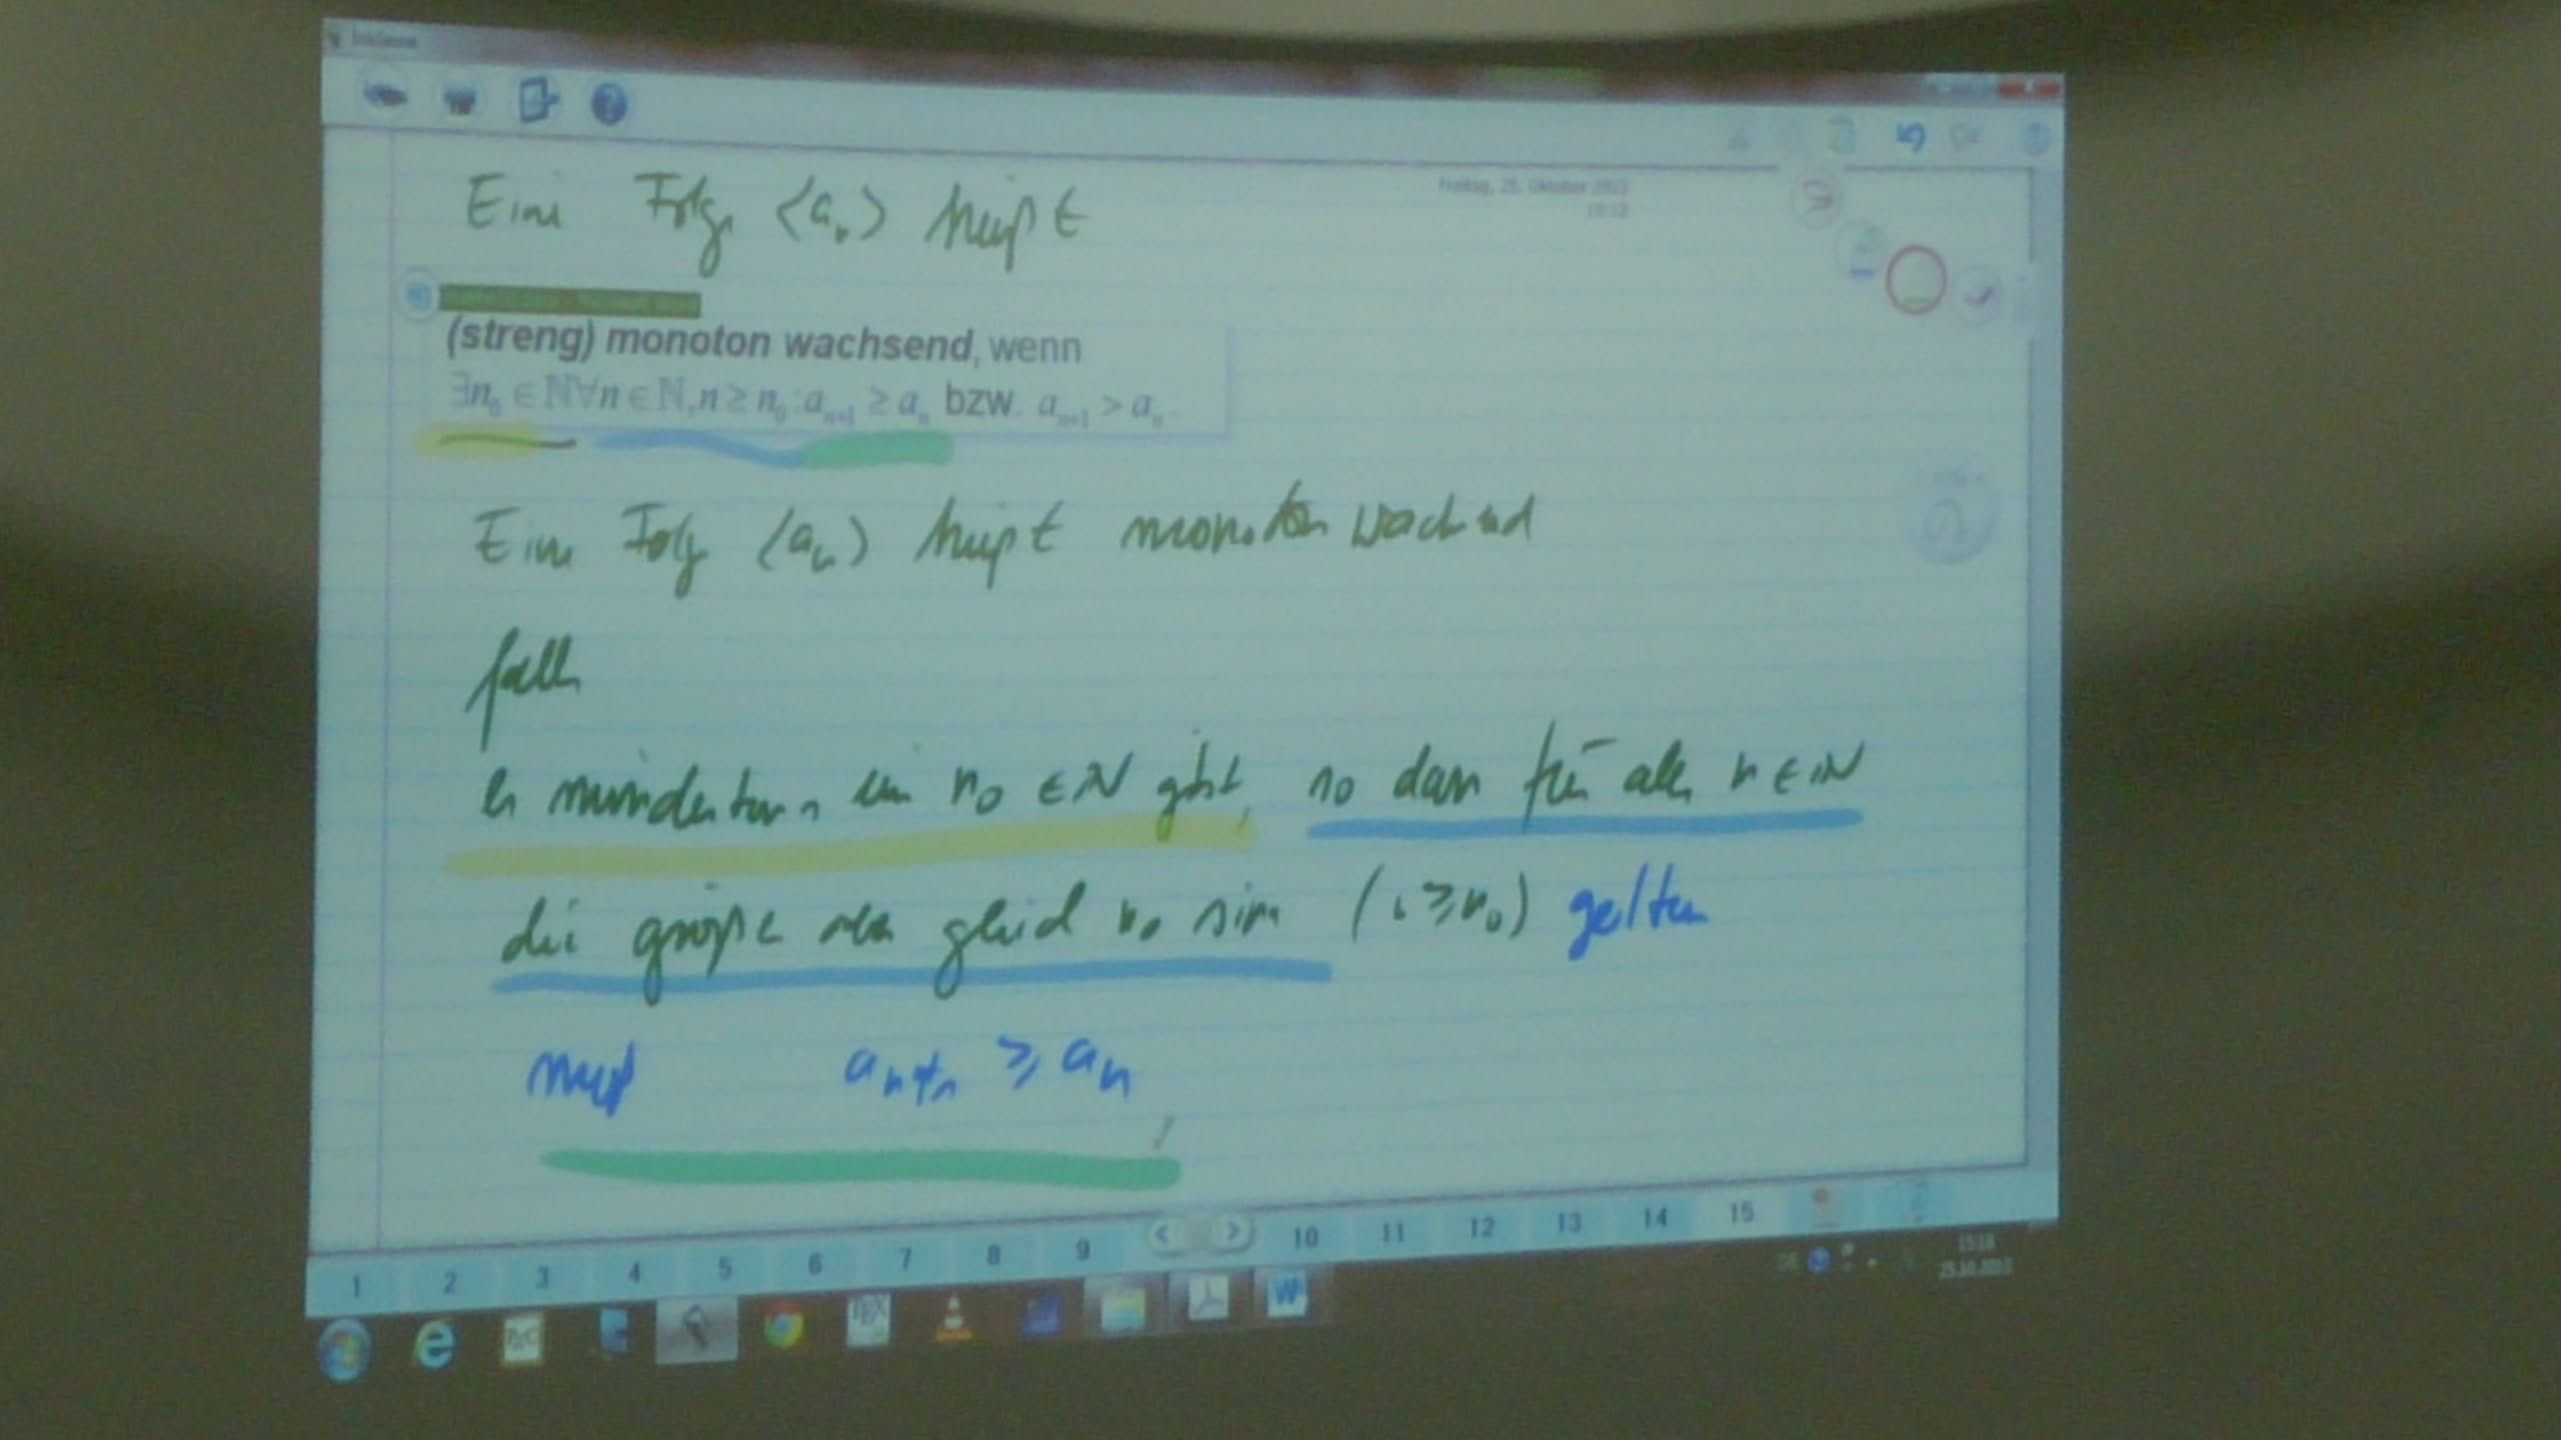 Eine Folge ⟨aₙ⟩ heißt
Freitag, 25. Oktober 2013
(streng) monoton wachsend, wenn
∃n₀ ∈ ℕ∀n ∈ ℕ, n ≥ n₀ : aₙ₊₁ ≥ aₙ bzw. aₙ₊₁ > aₙ
Eine Folge ⟨aₙ⟩ heißt monoton wachsend
falls
es mindestens ein n₀ ∈ ℕ gibt, so dass für alle n ∈ ℕ
die größer oder gleich n₀ sind (n ≥ n₀) gelten
muß aₙ₊₁ ≥ aₙ
1 2 3 4 5 6 7 8 9 < > 10 11 12 13 14 15
25.10.2013
W